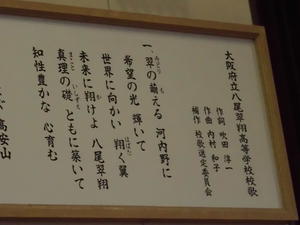 大阪府立八尾翠翔高等学校校歌
作詞 吹田淳一
作曲 内村和子
編作 校歌選定委員会
一、翠の萌える 河内野に
希望の光 輝いて
世界に向かい 翔く翼
未来に翔けよ 八尾翠翔
真理の礎 ともに築いて
知性豊かな 心育む
高安山